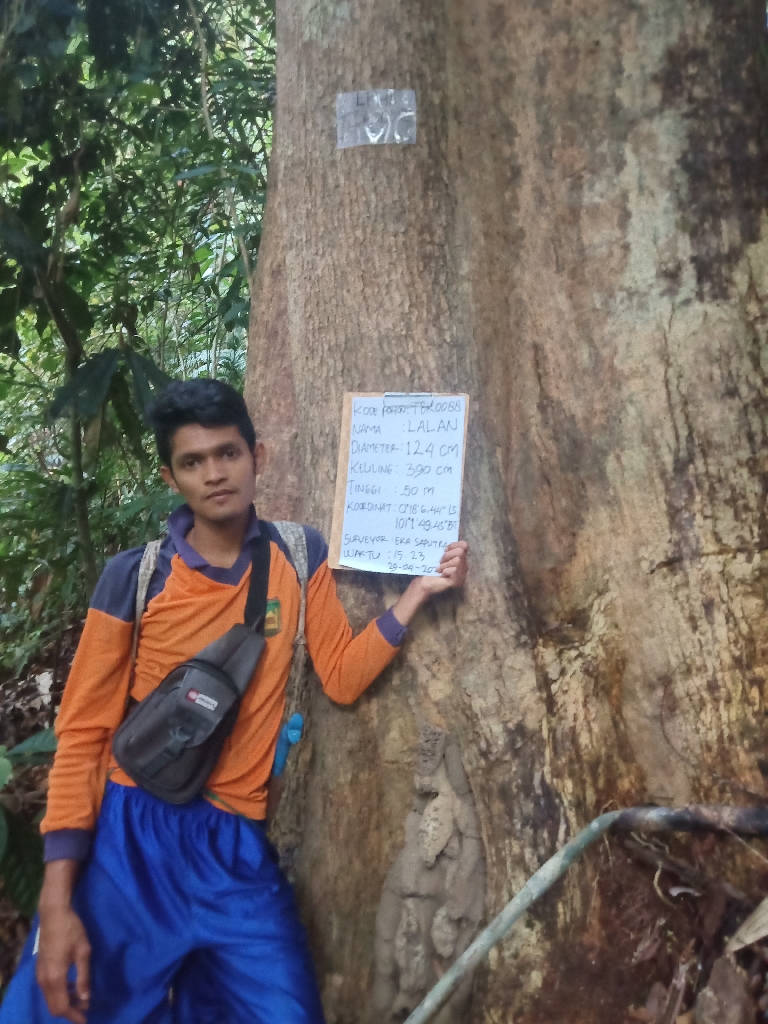 KODE POHON: TBK0088
NAMA : LALAN
DIAMETER: 124 cm
KELILING: 390 cm
TINGGI : 50 m
KOORDINAT : 0°18'6.44" LS
101°1'49.45" BT
SURVEYOR : EKA SAPUTRA
WAKTU : 15. 23
29-04-